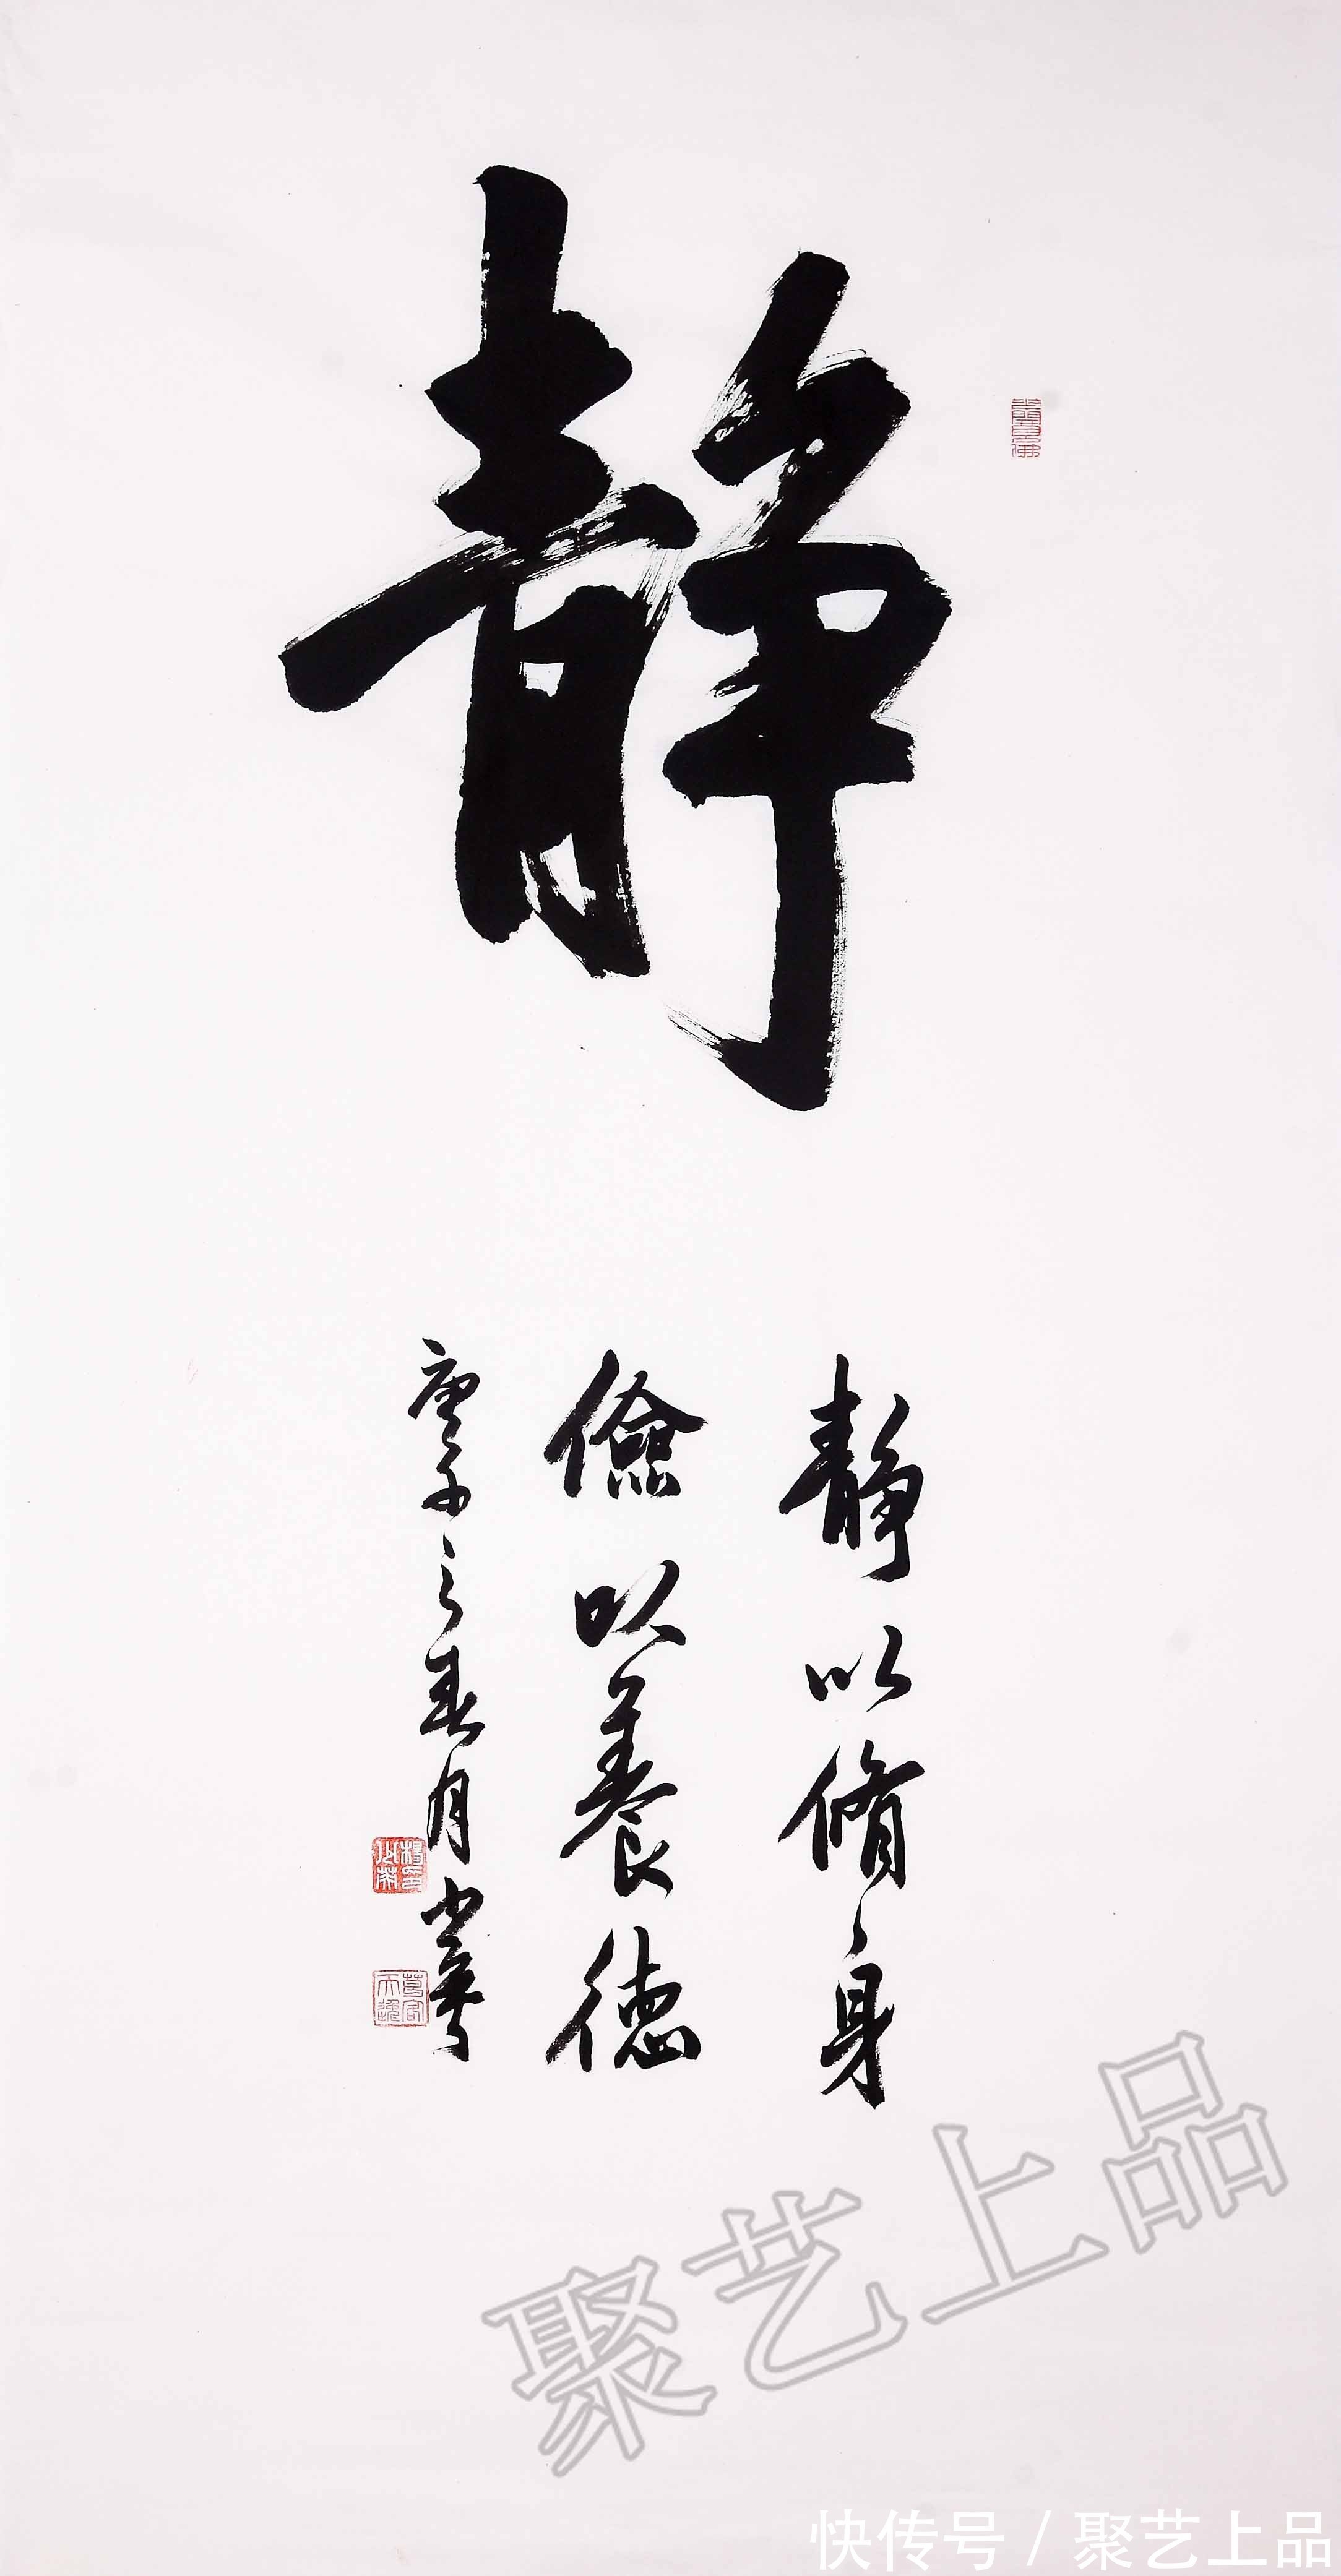 静
静以脩身
儉以養德
庚子之春月少華
聚艺上品
快传号 / 聚艺上品